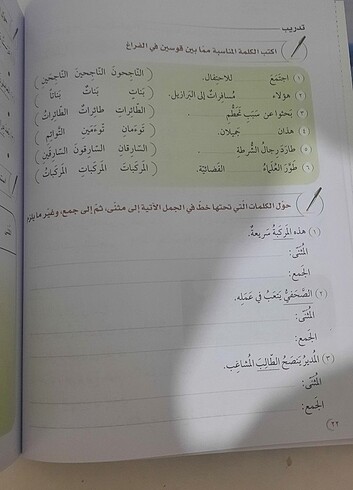 تدريب
اكتب الكلمة المناسبة ممّا بين قوسين في الفراغ
(١) اجتَمَعَ ........ للاحتفال. (النّاجحونَ النّاجحينَ النّاجحَين)
(٢) هؤلاء ........ مُسافراتٌ إلى البَرازيل. (بَناتٍ بَناتٌ بَناتاً)
(٣) بَحثوا عن سَبَبِ تَحَطُّمِ ........ (الطّائراتِ طائراتٌ الطّائراتُ)
(٤) هذان ........ جَميلان. (تَوءَمانِ تَوءَمَينِ التّوائم)
(٥) طارَدَ رِجالُ الشُّرطةِ ........ (السّارِقانِ السّارِقونَ السّارِقَينِ)
(٦) طَوَّرَ العُلَماءُ ........ الفَضائيّة. (المَركَباتَ المَركَباتِ المَركَباتُ)
حوّل الكلمات الّتي تحتها خطّ في الجمل الآتية إلى مثنّى، ثمّ إلى جمع، وغيّر ما يلزم
(١) هذه المَركَبةُ سَريعةٌ.
المُثنّى:
الجمع:
(٢) الصَّحَفيُّ يَتعَبُ في عَمَلِه.
المُثنّى:
الجمع:
(٣) المُديرُ يَنصَحُ الطّالِبَ المُشاغِب.
المُثنّى:
الجمع:
٢٢